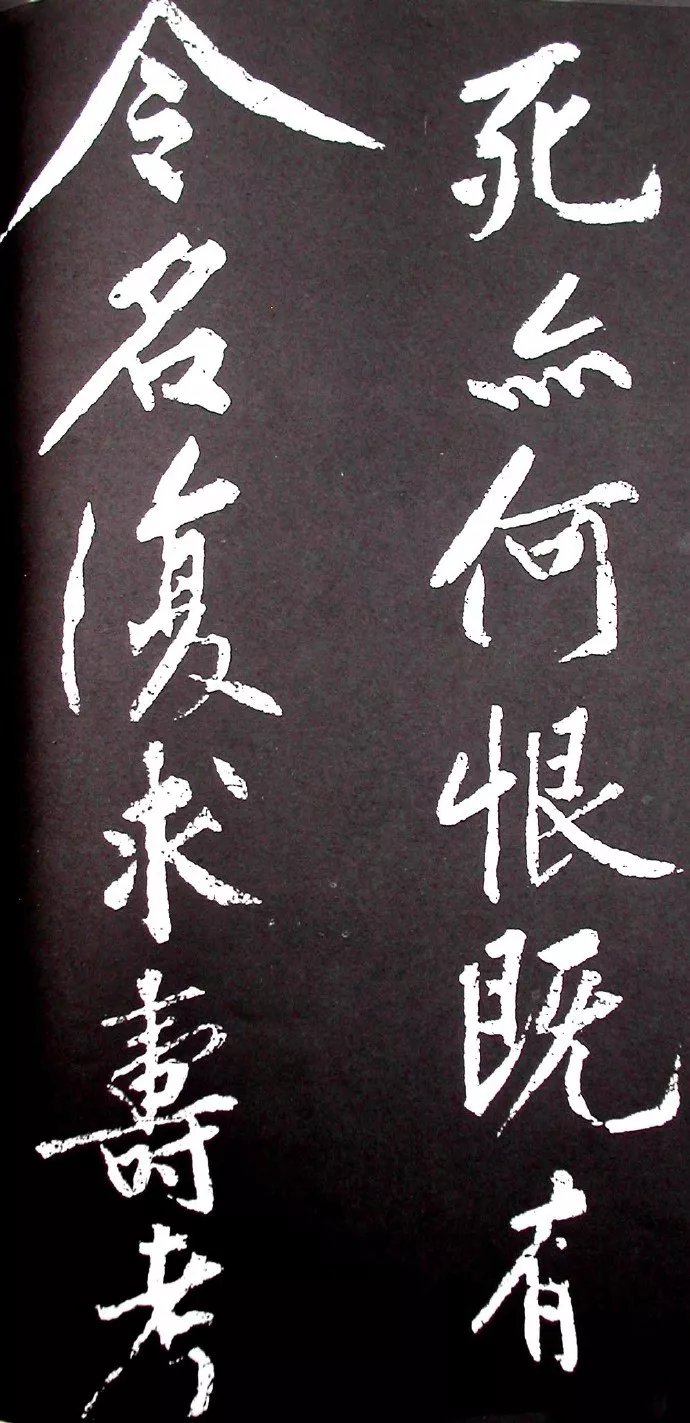 死亦何恨既有
令名復求壽考